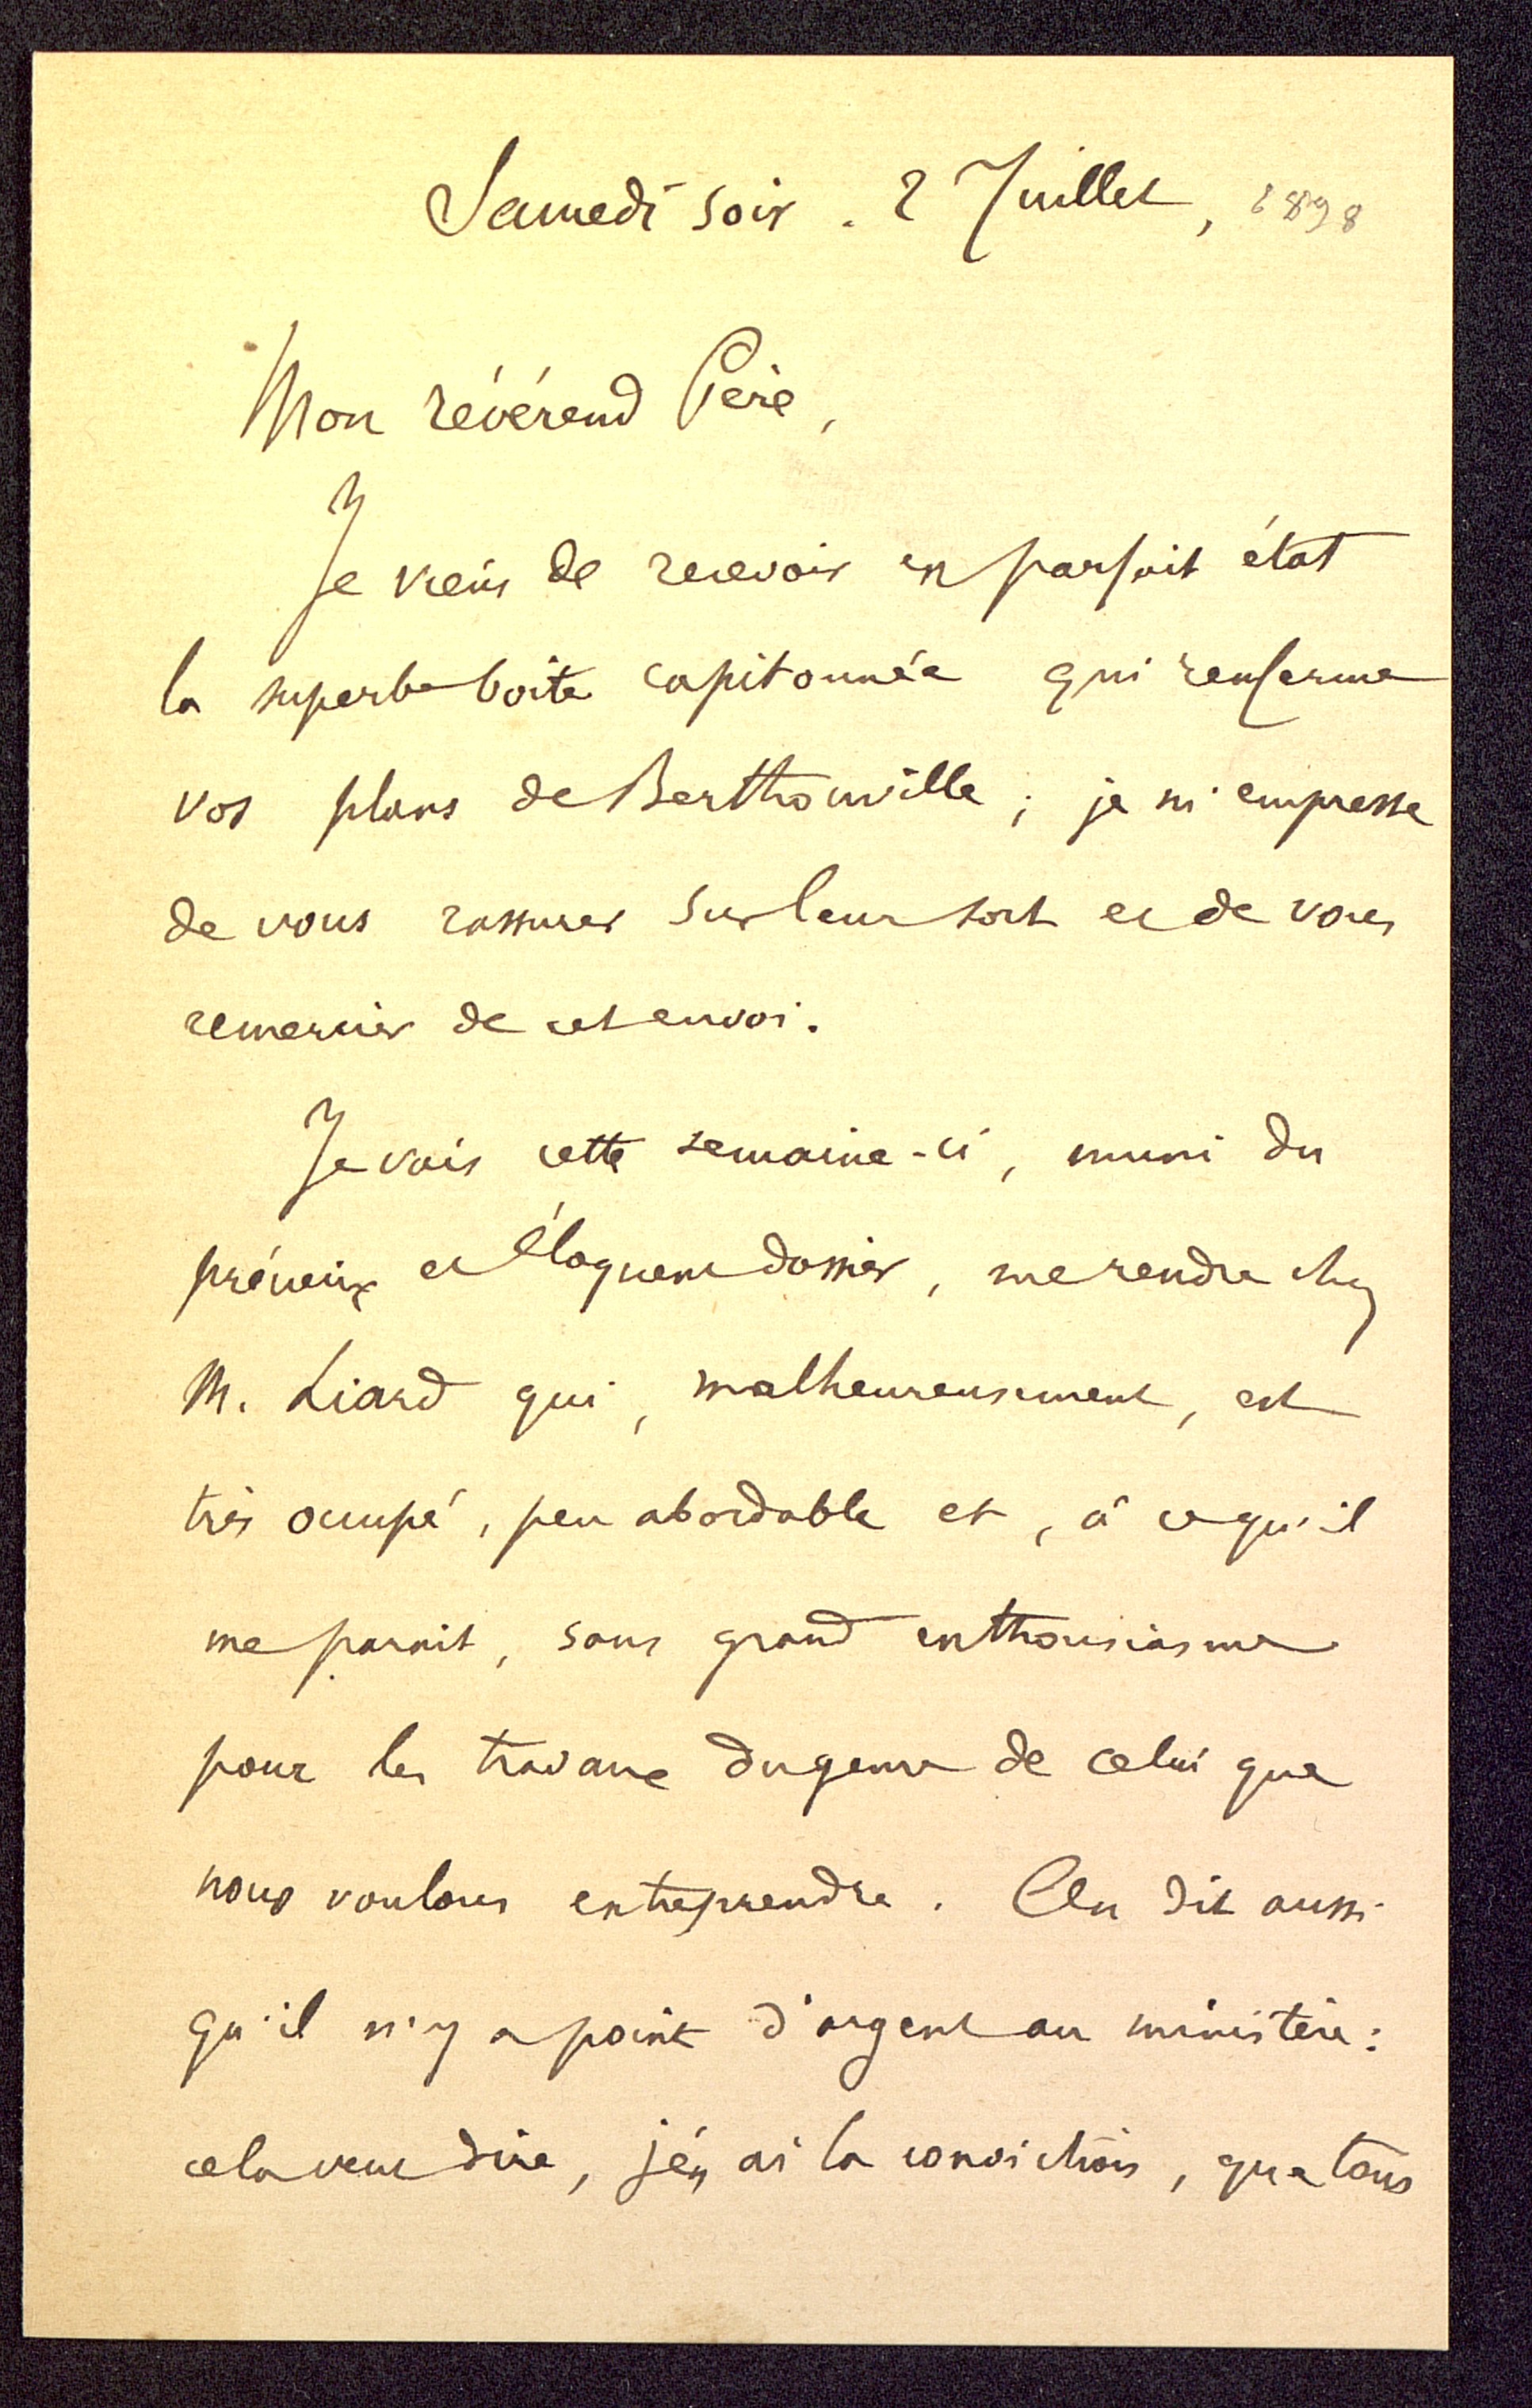 Samedi soir . 2 Juillet, 1898
Mon révérend Père,
Je viens de recevoir en parfait état
la superbe boite capitonnée qui renferme
vos plans de Berthouville ; je m'empresse
de vous rassurer sur leur sort et de vous
remercier de cet envoi.
Je vais cette semaine-ci, muni du
précieux et éloquent dossier, me rendre chez
M. Liard qui, malheureusement, est
très occupé, peu abordable et, à ce qu'il
me parait, sans grand enthousiasme
pour les travaux du genre de celui que
nous voulons entreprendre. On dit aussi
qu'il n'y a point d'argent au ministère :
cela veut dire, j'en ai la conviction, que tous